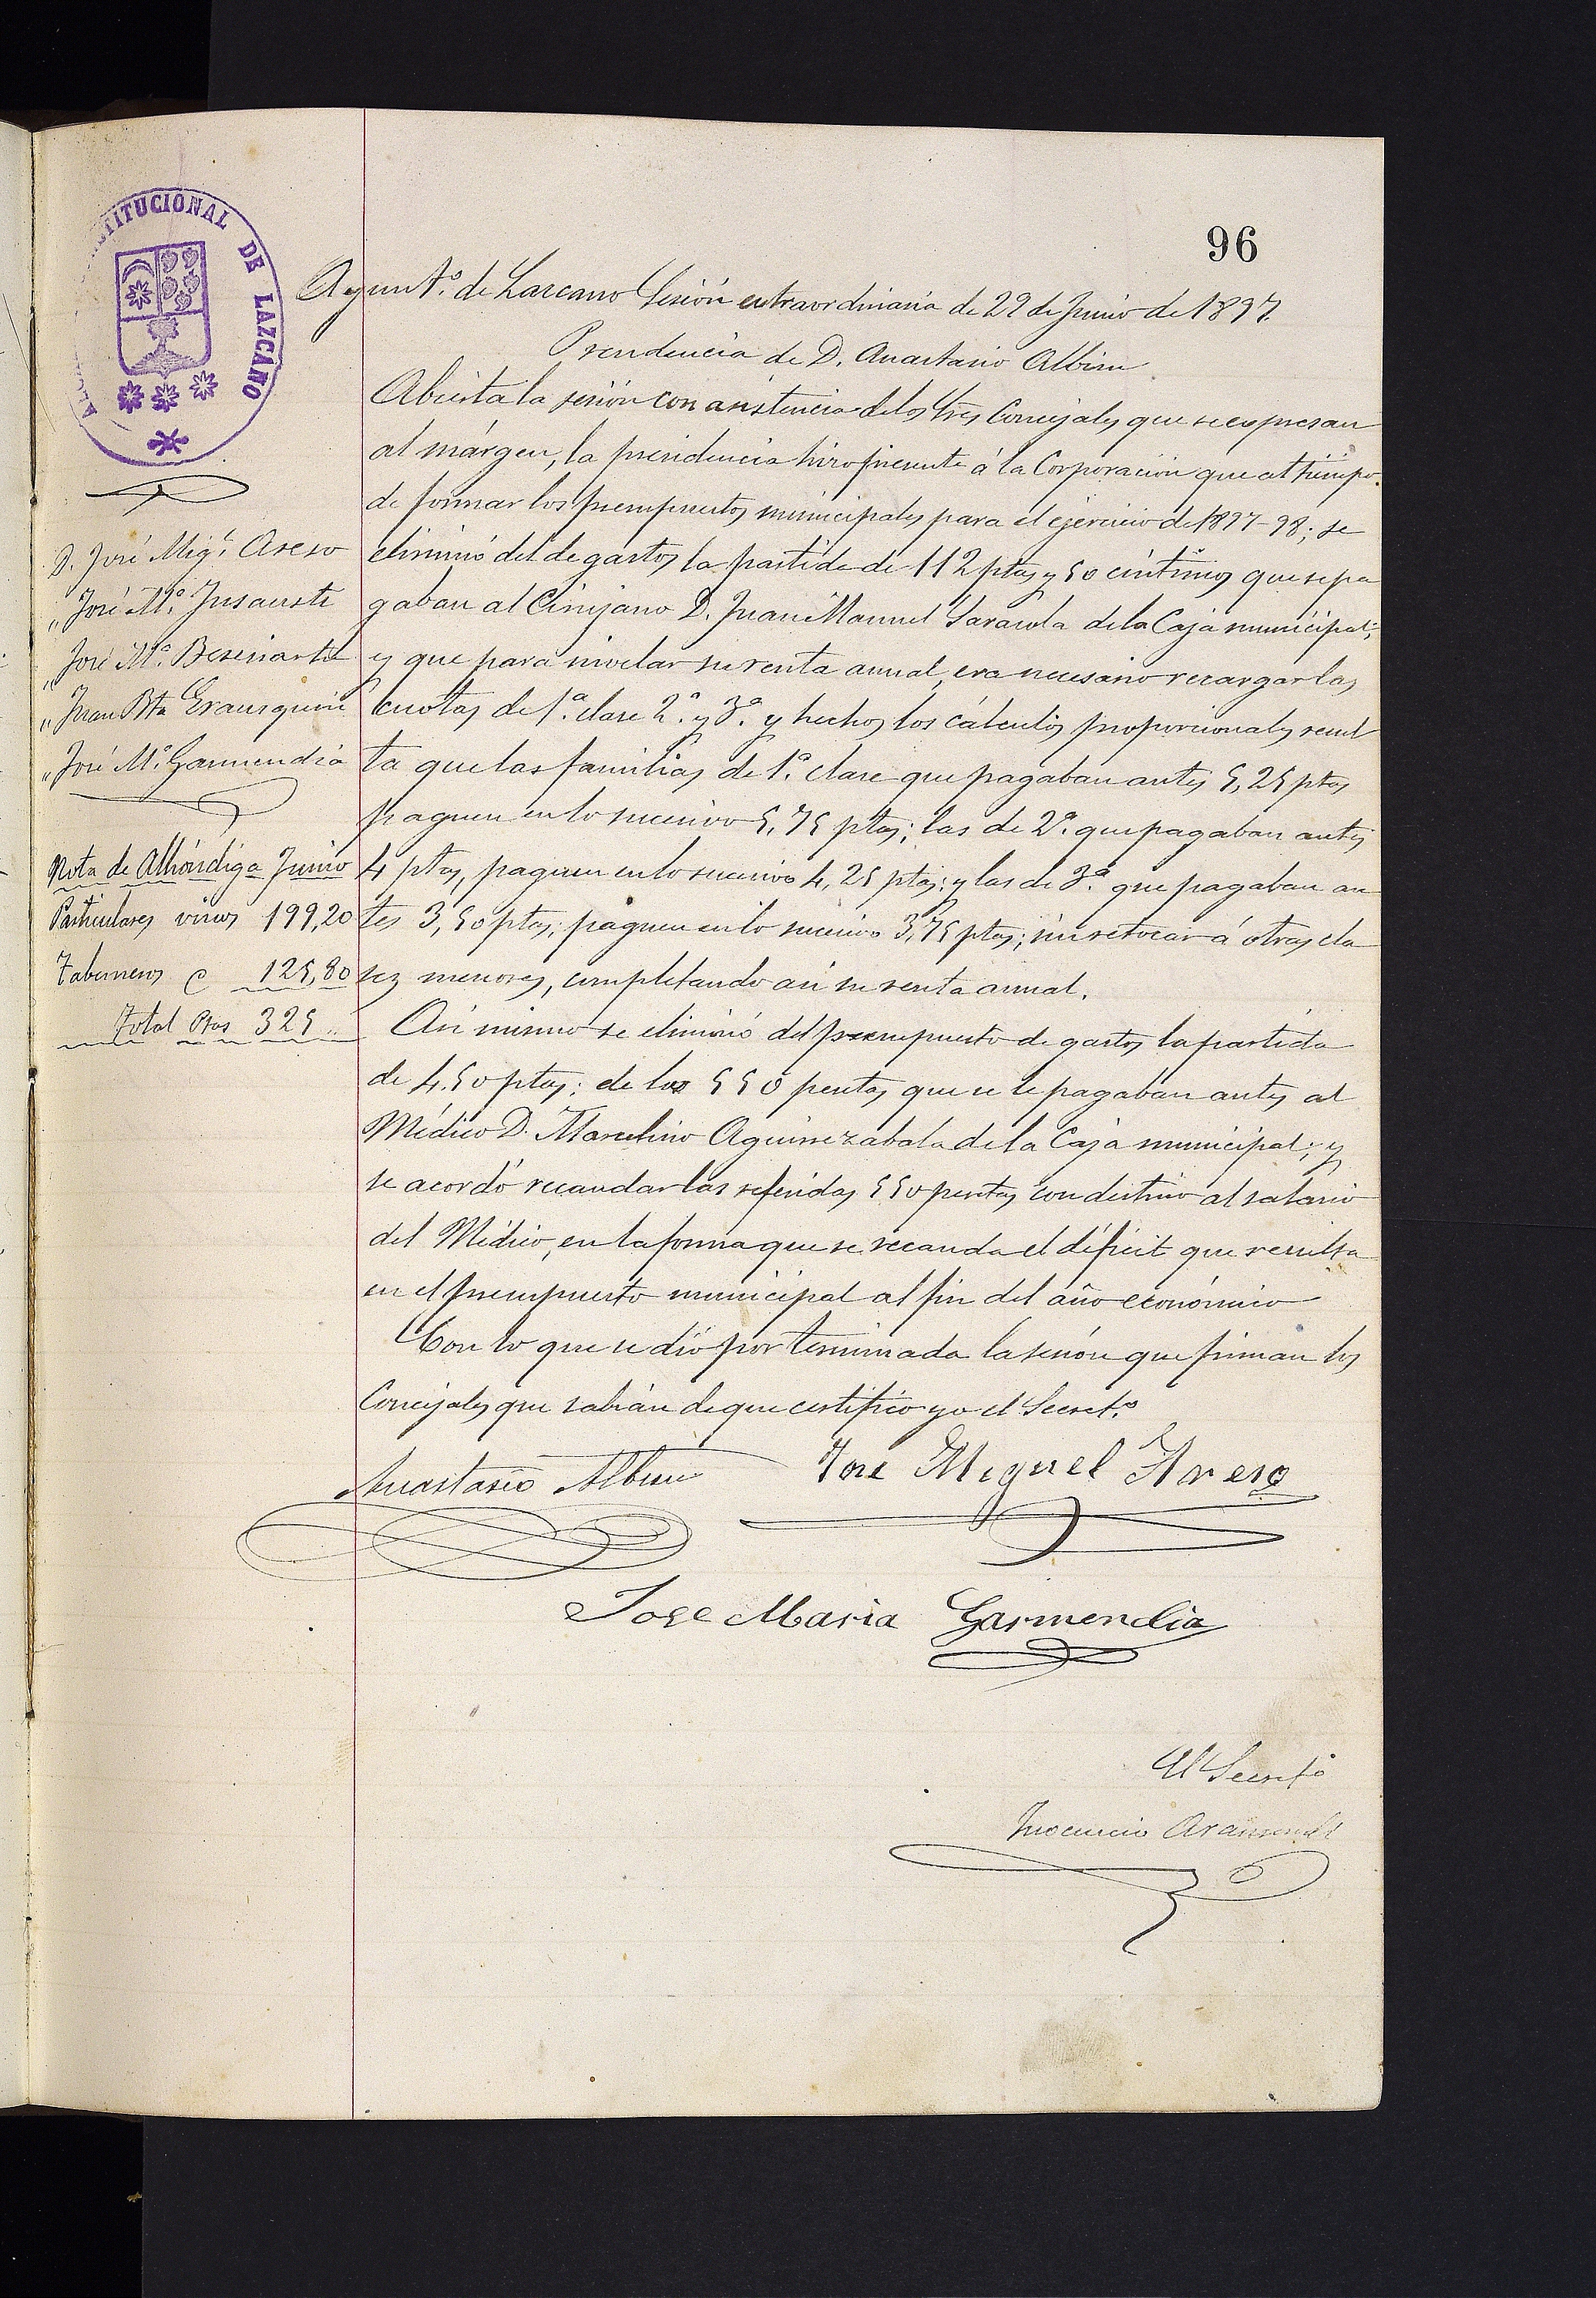 96
TITUCIONAL DE LAZCANO
Ayuntº. de Lazcano Sesión extraordinaria de 29 de Junio de 1897.
Presidencia de D. Anastasio Albisu
D. José Migl. Areso
" José Mª. Insausti
" José Mª.
" Juan Bta Erausquin
" José Mª. Garmendia
Nota de Alhóndiga Junio
Particulares vinos 199,20
Taberneros 125,80
Total Ptas 325 "
Abierta la sesión con asistencia de los Sres Concejales que se expresan
al márgen, la presidencia hizo presente á la Corporación que al tiempo
de formar los presupuestos municipales para el ejercicio de 1897-98; se
eliminó del de gastos la partida de 112 ptas y 50 céntimos que se pa
gaban al Cirujano D. Juan Manuel Sarasola de la Caja municipal;
y que para nivelar su renta anual, era necesario recargar las
cuotas de 1ª. clase 2ª. y 3ª. y hechos los cálculos proporcionales resul
ta que las familias de 1ª. clase que pagaban antes 5,25 ptas
paguen en lo sucesivo 5,75 ptas; las de 2ª. que pagaban antes
4 ptas, paguen en lo sucesivo 4,25 ptas; y las de 3ª. que pagaban an
tes 3,50 ptas; paguen en lo sucesivo 3,75 ptas; sin se tocar á otras cla
ses menores, completando así su renta anual.
Asi mismo se eliminó del presupuesto de gastos la partida
de 4.50 ptas: de las 550 pesetas que se le pagaban antes al
Médico D. Marcelino Aguirrezabala de la Caja municipal; y
se acordó recaudar las referidas 550 pesetas con destino al salario
del Médico, en la forma que se recauda el déficit que resulta
en el presupuesto municipal al fin del año económico
Con lo que se dió por terminada la sesión que firman los
Concejales que sabían de que certifico yo el Secretº.
Anastasio Albisu
José Miguel Areso
Jose Maria Garmendia
El Secretº
Inocencio